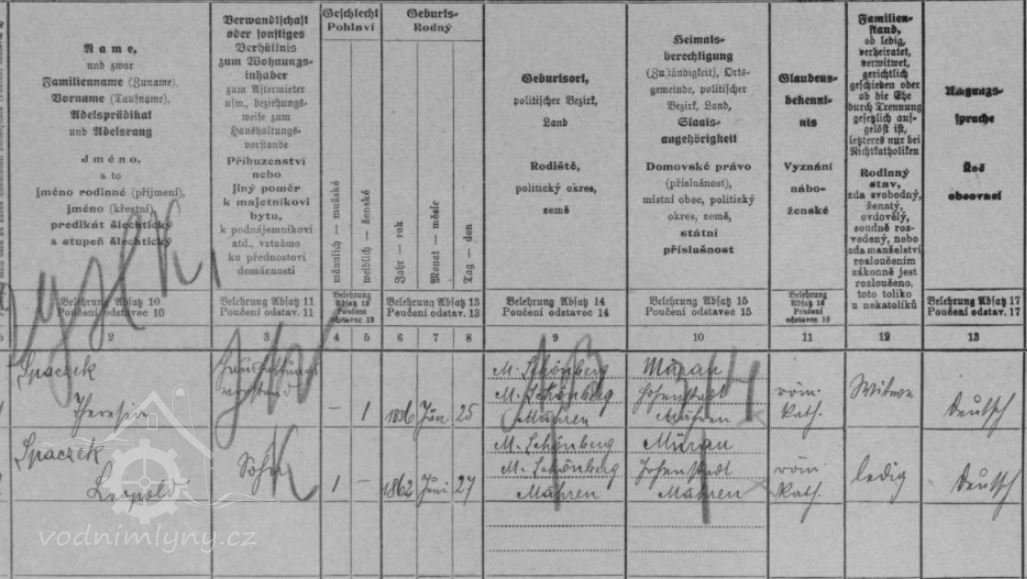 Name,
und zwar
Familienname (Zuname),
Vorname (Taufname),
Adelsprädikat
und Adelsrang
Jméno,
a to
jméno rodinné (přijmení),
jméno (křestní),
predikát šlechtický
a stupeň šlechtický
Belehrung Absatz 10
Poučení odstavec 10
2
Verwandtschaft
oder sonstiges
Verhältnis
zum Wohnungs-
inhaber
zum Aftermieter
usw., beziehungs-
weise zum
Haushaltungs-
vorstande
Příbuzenství
nebo
jiný poměr
k majetníkovi
bytu,
k podnájemníkovi
atd., vztažmo
ku přednostovi
domácnosti
Belehrung Absatz 11
Poučení odstav. 11
3
Geschlecht
Pohlaví
männlich — mužské
weiblich — ženské
Belehrung
Absatz 12
Poučení
odstavec 12
4 5
Geburts-
Rodný
Jahr — rok
Monat — měsíc
Tag — den
Belehrung Absatz 13
Poučení odstav. 13
6 7 8
Geburtsort,
politischer Bezirk,
Land
Rodiště,
politický okres,
země
Belehrung Absatz 14
Poučení odstavec 14
9
Heimats-
berechtigung
(Zuständigkeit), Orts-
gemeinde, politischer
Bezirk, Land,
Staats-
angehörigkeit
Domovské právo
(příslušnost),
místní obec, politický
okres, země,
státní
příslušnost
Belehrung Absatz 15
Poučení odstavec 15
10
Glaubens-
bekennt-
nis
Vyznání
nábo-
ženské
Belehrung
Absatz 16
Poučení
odstavec 16
11
Familien-
stand,
ob ledig,
verheiratet,
verwitwet,
gerichtlich
geschieden oder
ob die Ehe
durch Trennung
gesetzlich auf-
gelöst ist,
letzteres nur bei
Nichtkatholiken
Rodinný
stav,
zda svobodný,
ženatý,
ovdovělý,
soudně roz-
vedený, nebo
zda manželství
rozloučením
zákonně jest
rozloučeno,
toto toliko
u nekatolíků
12
Umgangs-
sprache
Řeč
obcovací
Belehrung Absatz 17
Poučení odstav. 17
13
Spaczek
Theresia
Haushaltungs
vorstand
— 1 1836 Jän 25
M. Schönberg
M. Schönberg
Mähren
Mürau
Hohenstadt
Mähren
röm.
kath.
Witwe
Deutsch
Spaczek
Leopold
Sohn
1 — 1862 Juni 27
M. Schönberg
M. Schönberg
Mähren
Mürau
Hohenstadt
Mähren
röm.
kath.
ledig
Deutsch
vodnimlyny.cz